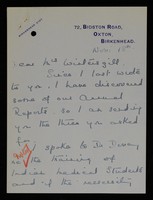 70, BIDSTON ROAD,
OXTON,
BIRKENHEAD.
Nov 15th
Dear Mr Wintersgill
Since I last wrote
to you, I have discovered
some of our Annual
Reports so I am sending
you the three you asked
for.
I spoke to Dr Dixon
on the training of
Indian Medical Students
and of the university